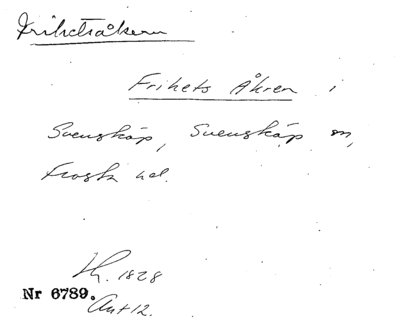 Frihetsåkern
Frihets Åkren i
Svenskóp, Svenskóp sn,
Frosta hd.
Th. 1828
Nr 6789.
Ant 12.